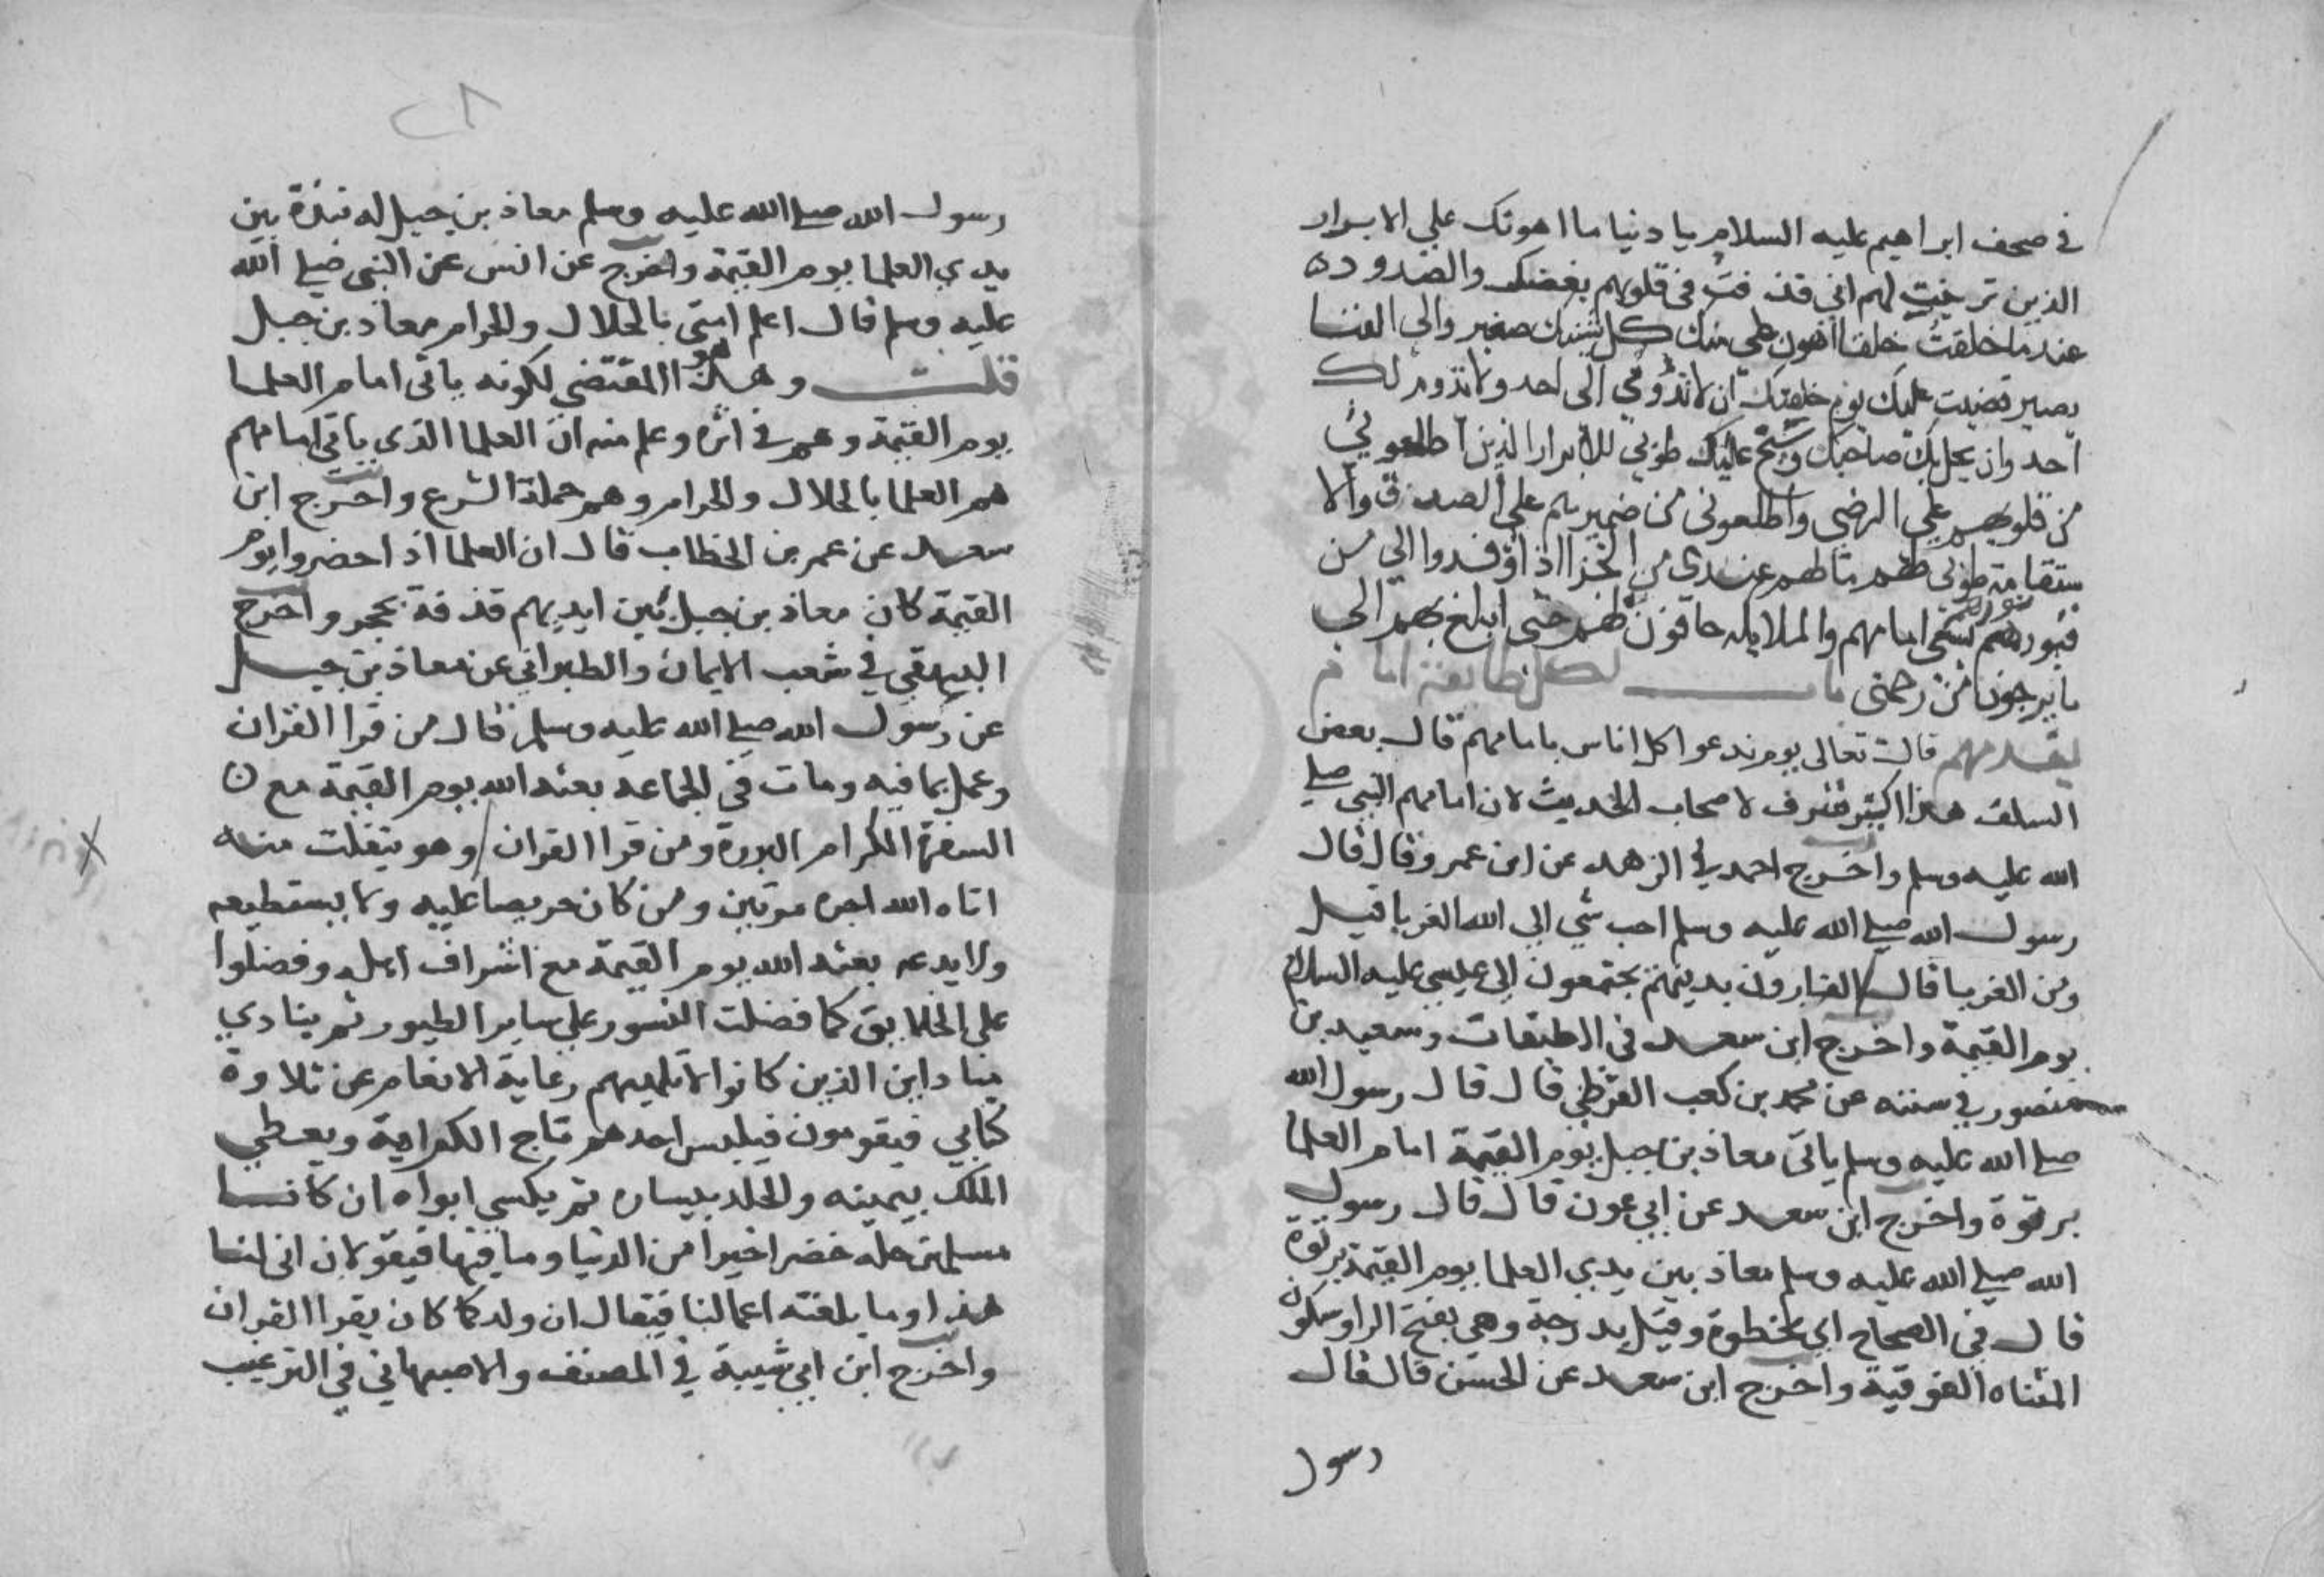 في صحف ابراهيم عليه السلام يا دنيا ما اهونك علي الابرار
الذين تزينت لهم اني قذفت في قلوبهم بغضك والصدود
عندما خلقت خلقا اهون علي منك كل شانك صغير والى الفنا
يصير قضيت عليك يوم خلقتك ان لا تدومي الى احد ولا يدوم لك
احد وان بخل بك صاحبك وشح عليك طوبي للابرار الذين اطلعوني
من قلوبهم علي الرضي واطلعوني من ضميرهم علي الصدق والا
ستقامة طوبى لهم ما لهم عندي من الجزا اذا وفدوا الي من
قبورهم نورهم يسعى امامهم والملايكه حافون لهم حتى ابلغ بهم الى
ما يرجون من رحمتى باب لكل طايفة امام
يقدمهم قال تعالى يوم ندعوا كل اناس بامامهم قال بعض
السلف هذا اكبر شرف لاصحاب الحديث لان امامهم النبي صلي
الله عليه وسلم واخرج احمد في الزهد عن ابن عمرو قال قال
رسول الله صلي الله عليه وسلم احب شي الي الله الغربا قيل
ومن الغربا قال الفارون بدينهم يجتمعون الي عيسي عليه السلام
يوم القيمة واخرج ابن سعد في الطبقات وسعيد بن
منصور في سننه عن محمد بن كعب القرظي قال قال رسول الله
صلي الله عليه وسلم ياتى معاذ بن جبل يوم القيمة امام العلما
برتوة واخرج ابن سعد عن ابي عون قال قال رسول
الله صلي الله عليه وسلم معاذ بين يدي العلما يوم القيمة برتوة
قال في الصحاح اي بخطوة وقيل بدرجة وهي بفتح الرا وسكون
المثناه الفوقية واخرج ابن سعد عن الحسن قال قال
رسول
٢٨
رسول الله صلي الله عليه وسلم معاذ بن جبل له نبذة بين
يدي العلما يوم القيمة واخرج عن انس عن النبي صلي الله
عليه وسلم قال اعلم امتي بالحلال والحرام معاذ بن جبل
قلت وهذا هو المقتضي لكونه ياتى امام العلما
يوم القيمة وهم في اثره وعلم منه ان العلما الذي ياتي امامهم
هم العلما بالحلال والحرام وهم حملة الشرع واخرج ابن
سعد عن عمر بن الخطاب قال ان العلما اذا حضروا يوم
القيمة كان معاذ بن جبل بين ايديهم قذفة بحجر واخرج
البيهقي في شعب الايمان والطبراني عن معاذ بن جبل
عن رسول الله صلي الله عليه وسلم قال من قرا القران
وعمل بما فيه ومات في الجماعة بعثه الله يوم القيمة مع
السفرة الكرام البررة ومن قرا القران وهو يتفلت منه
اتاه الله اجره مرتين ومن كان حريصا عليه ولا يستطيعه
ولا يدعه بعثه الله يوم القيمة مع اشراف اهله وفضلوا
علي الخلايق كما فضلت النسور علي ساير الطيور ثم ينادي
مناد اين الذين كانوا لا تلهيهم رعاية الانعام عن تلاوة
كتابي فيقومون فيلبس احدهم تاج الكرامة ويعطي
الملك بيمينه والخلد بيساره ثم يكسي ابواه ان كانا
مسلمين حلة خضرا خيرا من الدنيا وما فيها فيقولان انى لنا
هذا وما بلغته اعمالنا فيقال ان ولدكما كان يقرا القران
واخرج ابن ابي شيبة في المصنف والاصبهاني في الترغيب